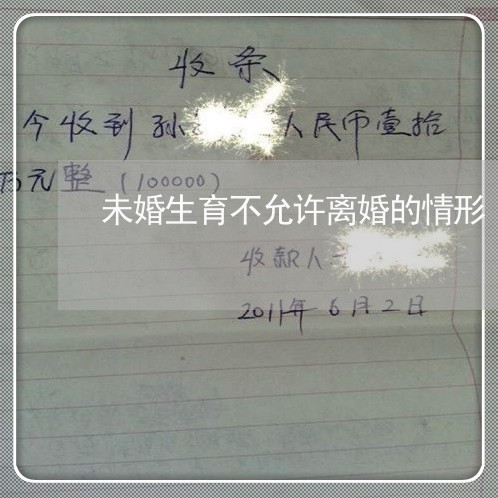 收条
今收到孙 人民币壹拾
万元整（100000）
未婚生育不允许离婚的情形
收款人
2011年6月2日